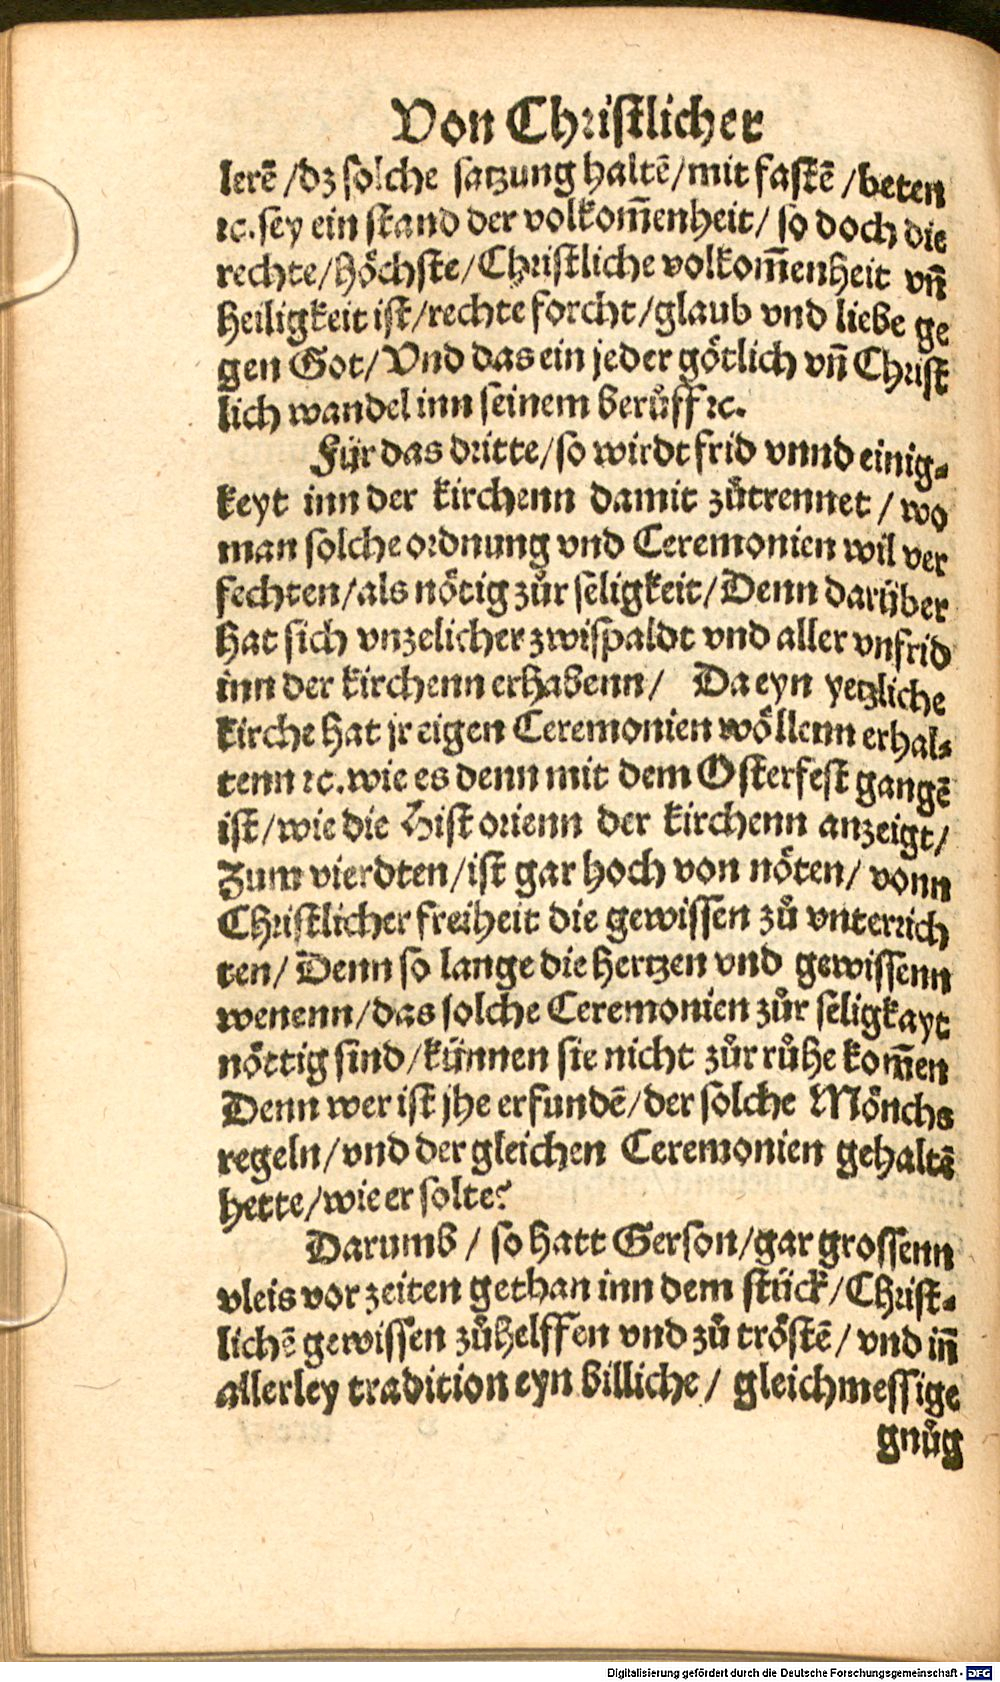 Von Christlicher
lerē /dz solche satzung haltē/mit fastē /beten
ꝛc. sey ein stand der volkom̄enheit/ so doch die
rechte/höchste/Christliche volkom̄enheit vn̄
heiligkeit ist/rechte forcht/glaub vnd liebe ge
gen Got/Vnd das ein jeder götlich vn̄ Christ
lich wandel inn seinem berůff ꝛc.
Für das dritte/so wirdt frid vnnd einig⸗
keyt inn der kirchenn damit zůtrennet / wo
man solche ordnung vnd Ceremonien wil ver
fechten/als nötig zůr seligkeit/Denn darüber
hat sich vnzelicher zwispaldt vnd aller vnfrid
inn der kirchenn erhabenn/ Da eyn yetzliche
kirche hat jr eigen Ceremonien wöllenn erhal⸗
tenn ꝛc. wie es denn mit dem Osterfest gangē
ist/wie die Historienn der kirchenn anzeigt/
Zum vierdten/ist gar hoch von nöten/ vonn
Christlicher freiheit die gewissen zů vnterrich
ten/ Denn so lange die hertzen vnd gewissenn
wenenn/das solche Ceremonien zůr seligkayt
nöttig sind/künnen sie nicht zůr růhe kom̄en
Denn wer ist jhe erfundē/der solche Mönchs
regeln/vnd der gleichen Ceremonien gehaltē
hette/wie er solte?
Darumb / so hatt Gerson/gar grossenn
vleis vor zeiten gethan inn dem stück/Christ⸗
lichē gewissen zůhelffen vnd zů tröstē/ vnd in̄
allerley tradition eyn billiche/ gleichmessige
gnůg
Digitalisierung gefördert durch die Deutsche Forschungsgemeinschaft - DFG